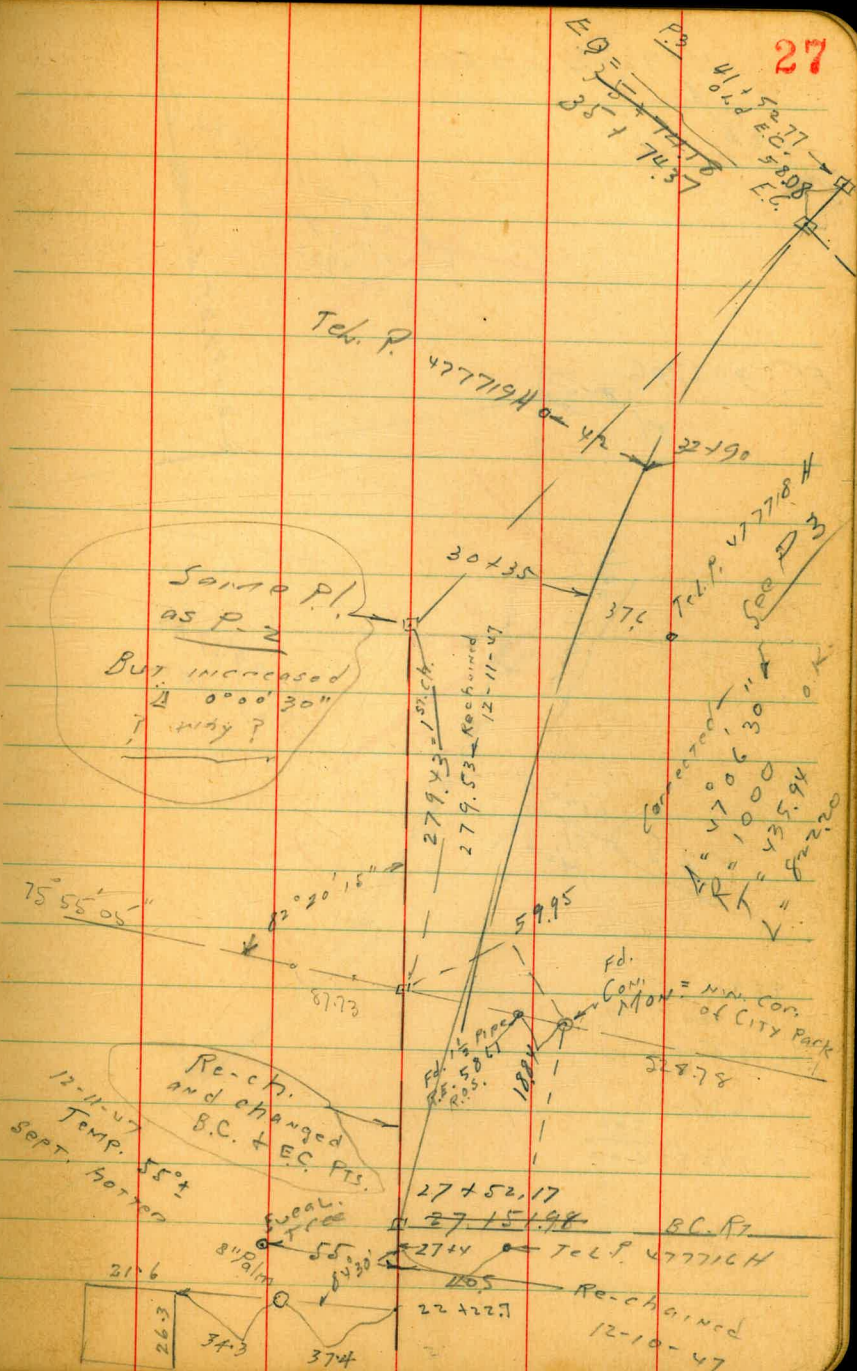 27
P.3
EQ =
35 + 74.18
35 + 74.37
41 + 52.77
Old E.C.
58.08
E.C.
Tel. P.
477719H
42
32+90
30+35
37.6
Tel. P. 477718 H
Same P.I.
as P-2
But increased
Δ 0°00'30"
? why ?
279.43 = 1st. ch.
279.53 - Rechained
12-11-47
Corrected
See P 3
Δ = 47°06'30"
R = 1000
T = 435.94 O.K.
L = 822.20
75° 55' 05"
82° 20' 15"
87.73
59.95
Fd.
Con.
Mon = N.W. Cor.
of City Park
Fd. 1½ Pipe
R.E. 5861
R.O.S.
18.84
528.78
Re-ch.
and changed
B.C. + E.C. Pts.
12-11-47
Temp. 55°±
Sept. Hotter
27 + 52.17
27+51.98
B.C. Rt
Eucal.
Tree
55
27+4
Tel. P. 477716 H
8" Palm
84°30'
40.5
Re-chained
12-10-47
21.6
26.3
34.3
37.4
22 +22.7